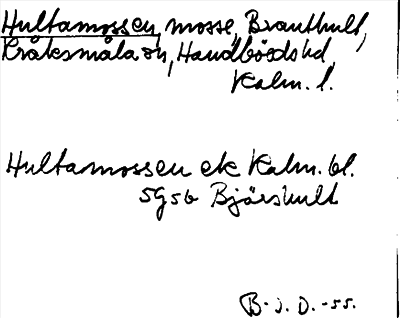 Hultamossen, mosse, Branthult,
Kråksmåla sn, Handbörds hd,
Kalm. l.
Hultamossen ek Kalm. bl.
5g5b Bjärshult
B. i. D. -55.